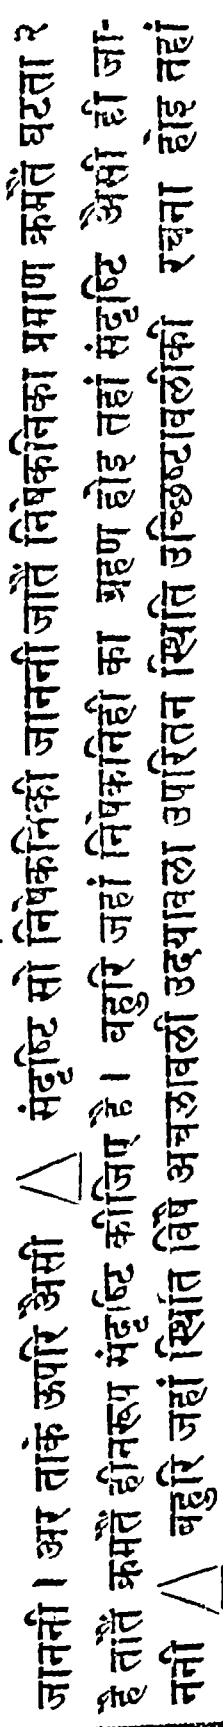 जाननी । अर ताकै ऊपरि अैसी △ संदृष्टि सो निषेकनिकी जाननी जातैं निषेकनिका प्रमाण क्रमतैं घटता २
है तातैं क्रमतैं हीनरूप संदृष्टि कीजिए है । बहुरि जहां निषेकनिही का ग्रहण होइ तहां संदृष्टि अैसी ही जा-
ननी △ बहुरि जहां स्थिति विषैं अचलावली उदयावली उपरितन स्थिति उच्छिष्टावलीकी रचना होइ तहां